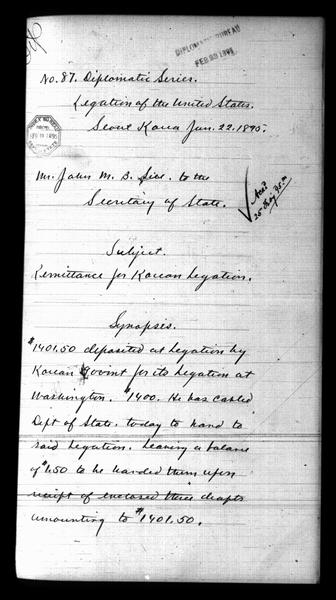 DIPLOMATIC BUREAU
No. 87. Diplomatic Series.
Legation of the United States.
Seoul Korea Jan. 22. 1895.
Mr. John M. B. Sill. to the
Secretary of State.
Subject.
Remittance for Korean Legation.
Synopsis.
$1401.50 deposited at Legation by
Korean Govmt for its Legation at
Washington. $1400. He has cabled
Dept of State. today to hand to
said Legation. Leaving a balance
of $1.50 to be handed them upon
receipt of enclosed three drafts
amounting to $1401.50.